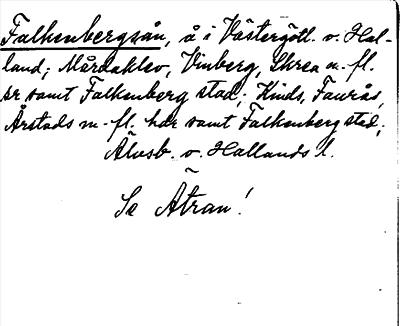 Falkenbergsån, å i Västergötl. o. Hal-
land; Mårdaklev, Vinberg, Skrea m. fl.
sr samt Falkenberg stad; Kinds, Faurås,
Årstads m. fl. här samt Falkenberg stad;
Älvsb. o. Hallands l.
Se Ätran!